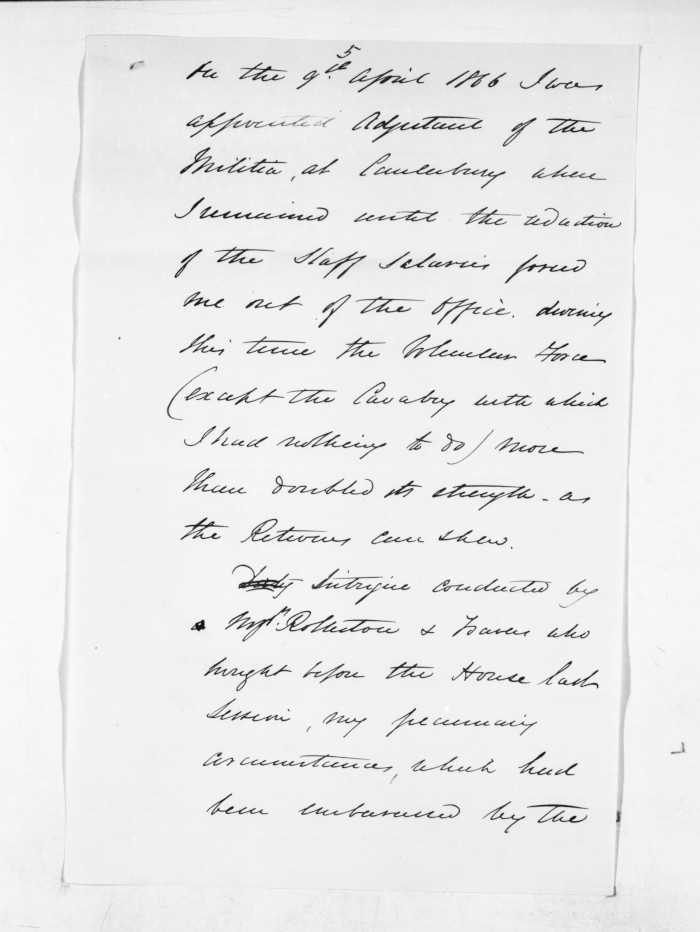 5
On the 9th April 1866 I was
appointed Adjutant of the
Militia, at Canterbury where
I remained until the reduction
of the Staff Salaries forced
me out of the Office. during
this time the Volunteer Force
(except the Cavalry with which
I had nothing to do) more
than doubled its strength - as
the Returns can shew.
Intrigue conducted by
Rolleston & Travers who
brought before the House last
Session, my pecuniary
circumstances, which had
been embarassed by the